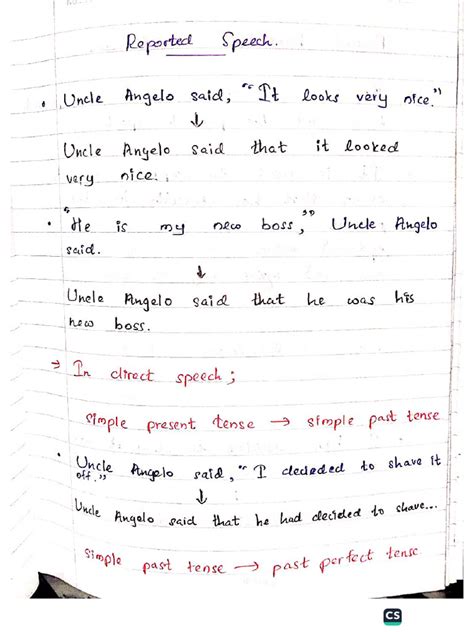 Reported Speech.
• Uncle Angelo said, "It looks very nice."
↓
Uncle Angelo said that it looked
very nice.
• "He is my new boss," Uncle Angelo
said.
↓
Uncle Angelo said that he was his
new boss.
→ In direct speech;
Simple present tense → simple past tense
• Uncle Angelo said, "I decleded to shave it
off."
↓
Uncle Angelo said that he had decided to shave...
Simple past tense → past perfect tense
CS